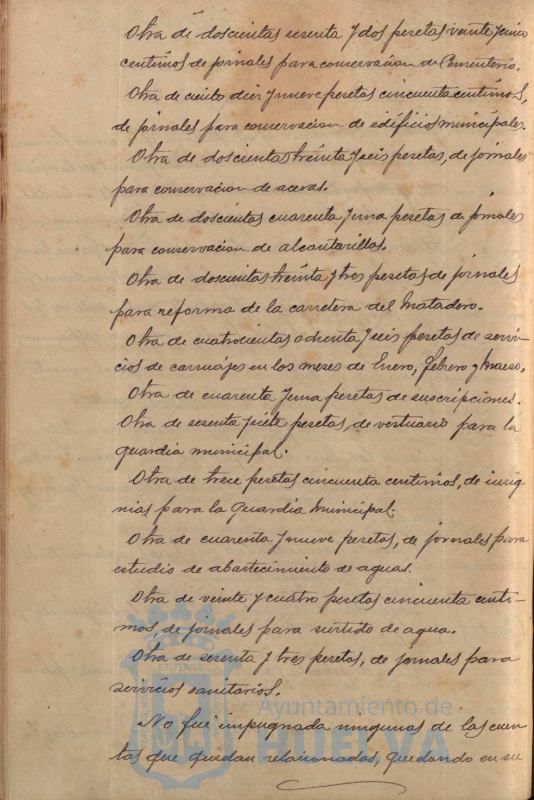 Otra de doscientas sesenta y dos pesetas veinte y cinco
centimos de jornales para conservacion de Cementerio.
Otra de ciento diez y nueve pesetas cincuenta centimos,
de jornales para conservacion de edificios municipales.
Otra de doscientas treinta y seis pesetas, de jornales
para conservacion de aceras.
Otra de doscientas cuarenta y una pesetas de jornales
para conservacion de alcantarillas.
Otra de doscientas treinta y tres pesetas de jornales
para reforma de la carretera del Matadero.
Otra de cuatrocientas ochenta y seis pesetas de servi-
cios de carruajes en los meses de Enero, Febrero y Marzo.
Otra de cuarenta y una pesetas de suscripciones.
Otra de sesenta y siete pesetas, de vestuario para la
guardia municipal.
Otra de trece pesetas cincuenta centimos, de insig-
nias para la guardia municipal.
Otra de cuarenta y nueve pesetas, de jornales para
estudio de abastecimiento de aguas.
Otra de veinte y cuatro pesetas cincuenta centi-
mos, de jornales para surtido de agua.
Otra de sesenta y tres pesetas, de jornales para
servicios sanitarios.
No fué impugnada ningunas de las cuen-
tas que quedan relacionadas, quedando en su
Ayuntamiento de
HUELVA